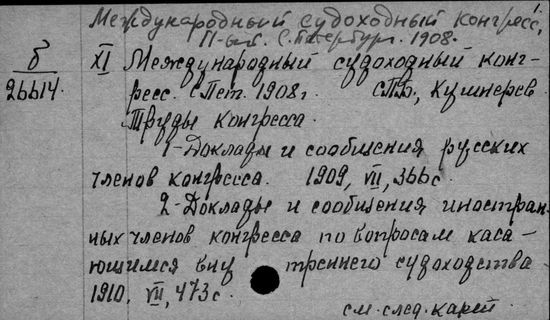 1.
Международный судоходный конгресс,
11-ый. С. Петербург. 1908.
б
26614.
XI Международный судоходный конг-
ресс. С Пет. 1908 г. СПБ, Кушнерев
Труды конгресса.
1-Доклады и сообщения русских
членов конгресса. 1909, VII, 366 с.
2-Доклады и сообщения иностран-
ных членов конгресса по вопросам каса-
ющимся внутреннего судоходства
1910, VII, 473 с.
см. след. карт.